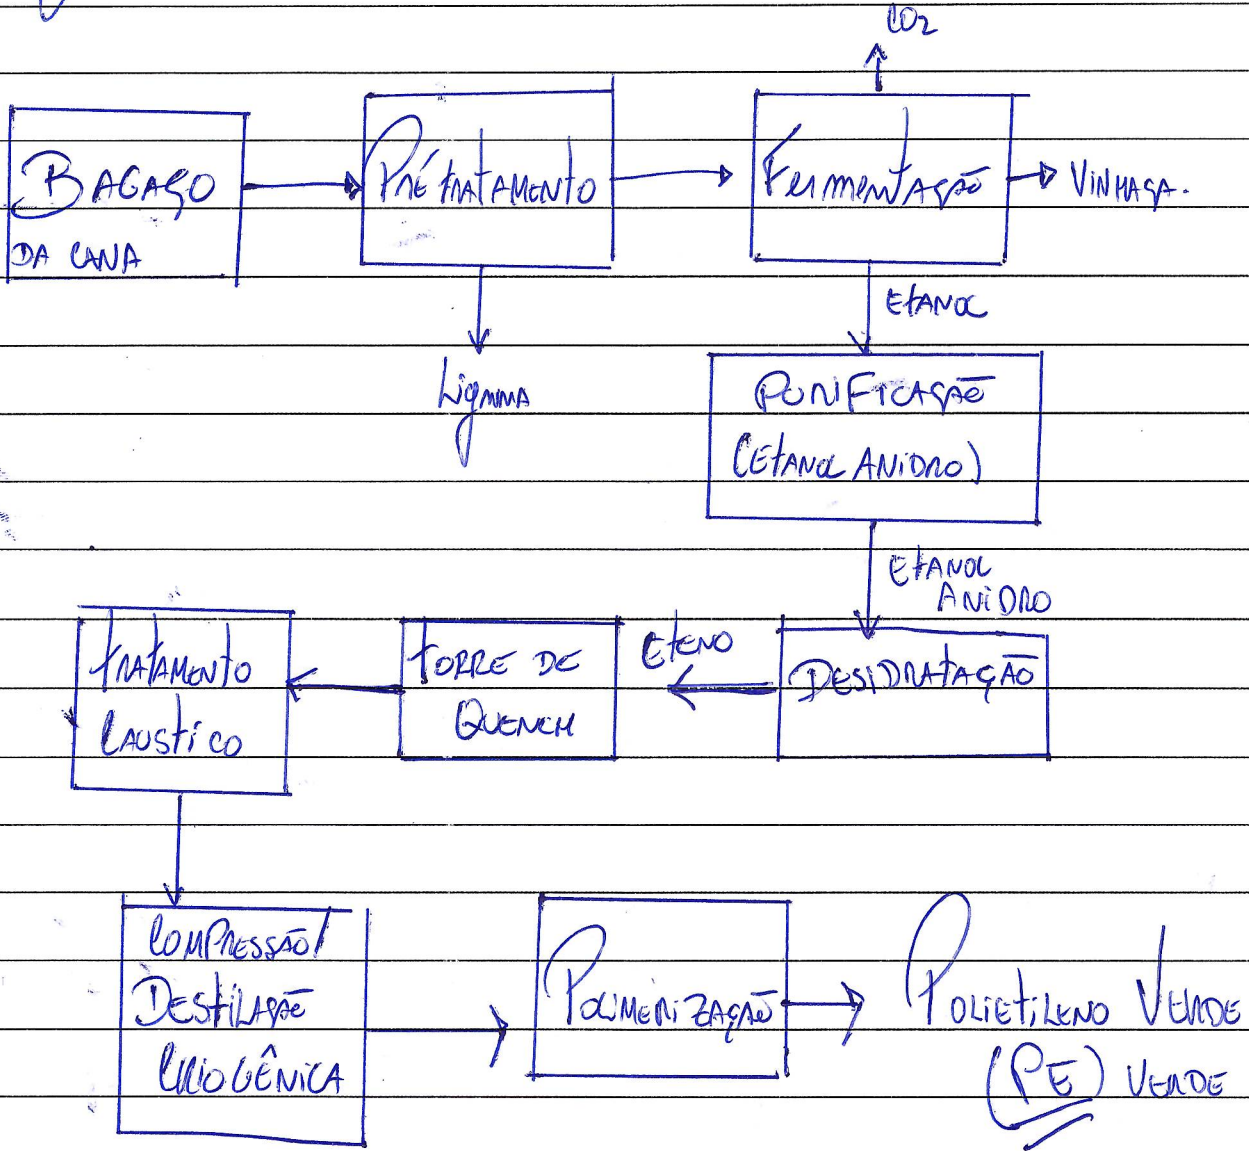 CO2
BAGAÇO
DA CANA
PRÉ TRATAMENTO
FERMENTAÇÃO
VINHAÇA.
LIGNINA
ETANOL
PURIFICAÇÃO
(ETANOL ANIDRO)
ETANOL
ANIDRO
DESIDRATAÇÃO
ETENO
TORRE DE
QUENCH
TRATAMENTO
CAUSTICO
COMPRESSÃO/
DESTILAÇÃO
CRIOGÊNICA
POLIMERIZAÇÃO
POLIETILENO VERDE
(PE) VERDE